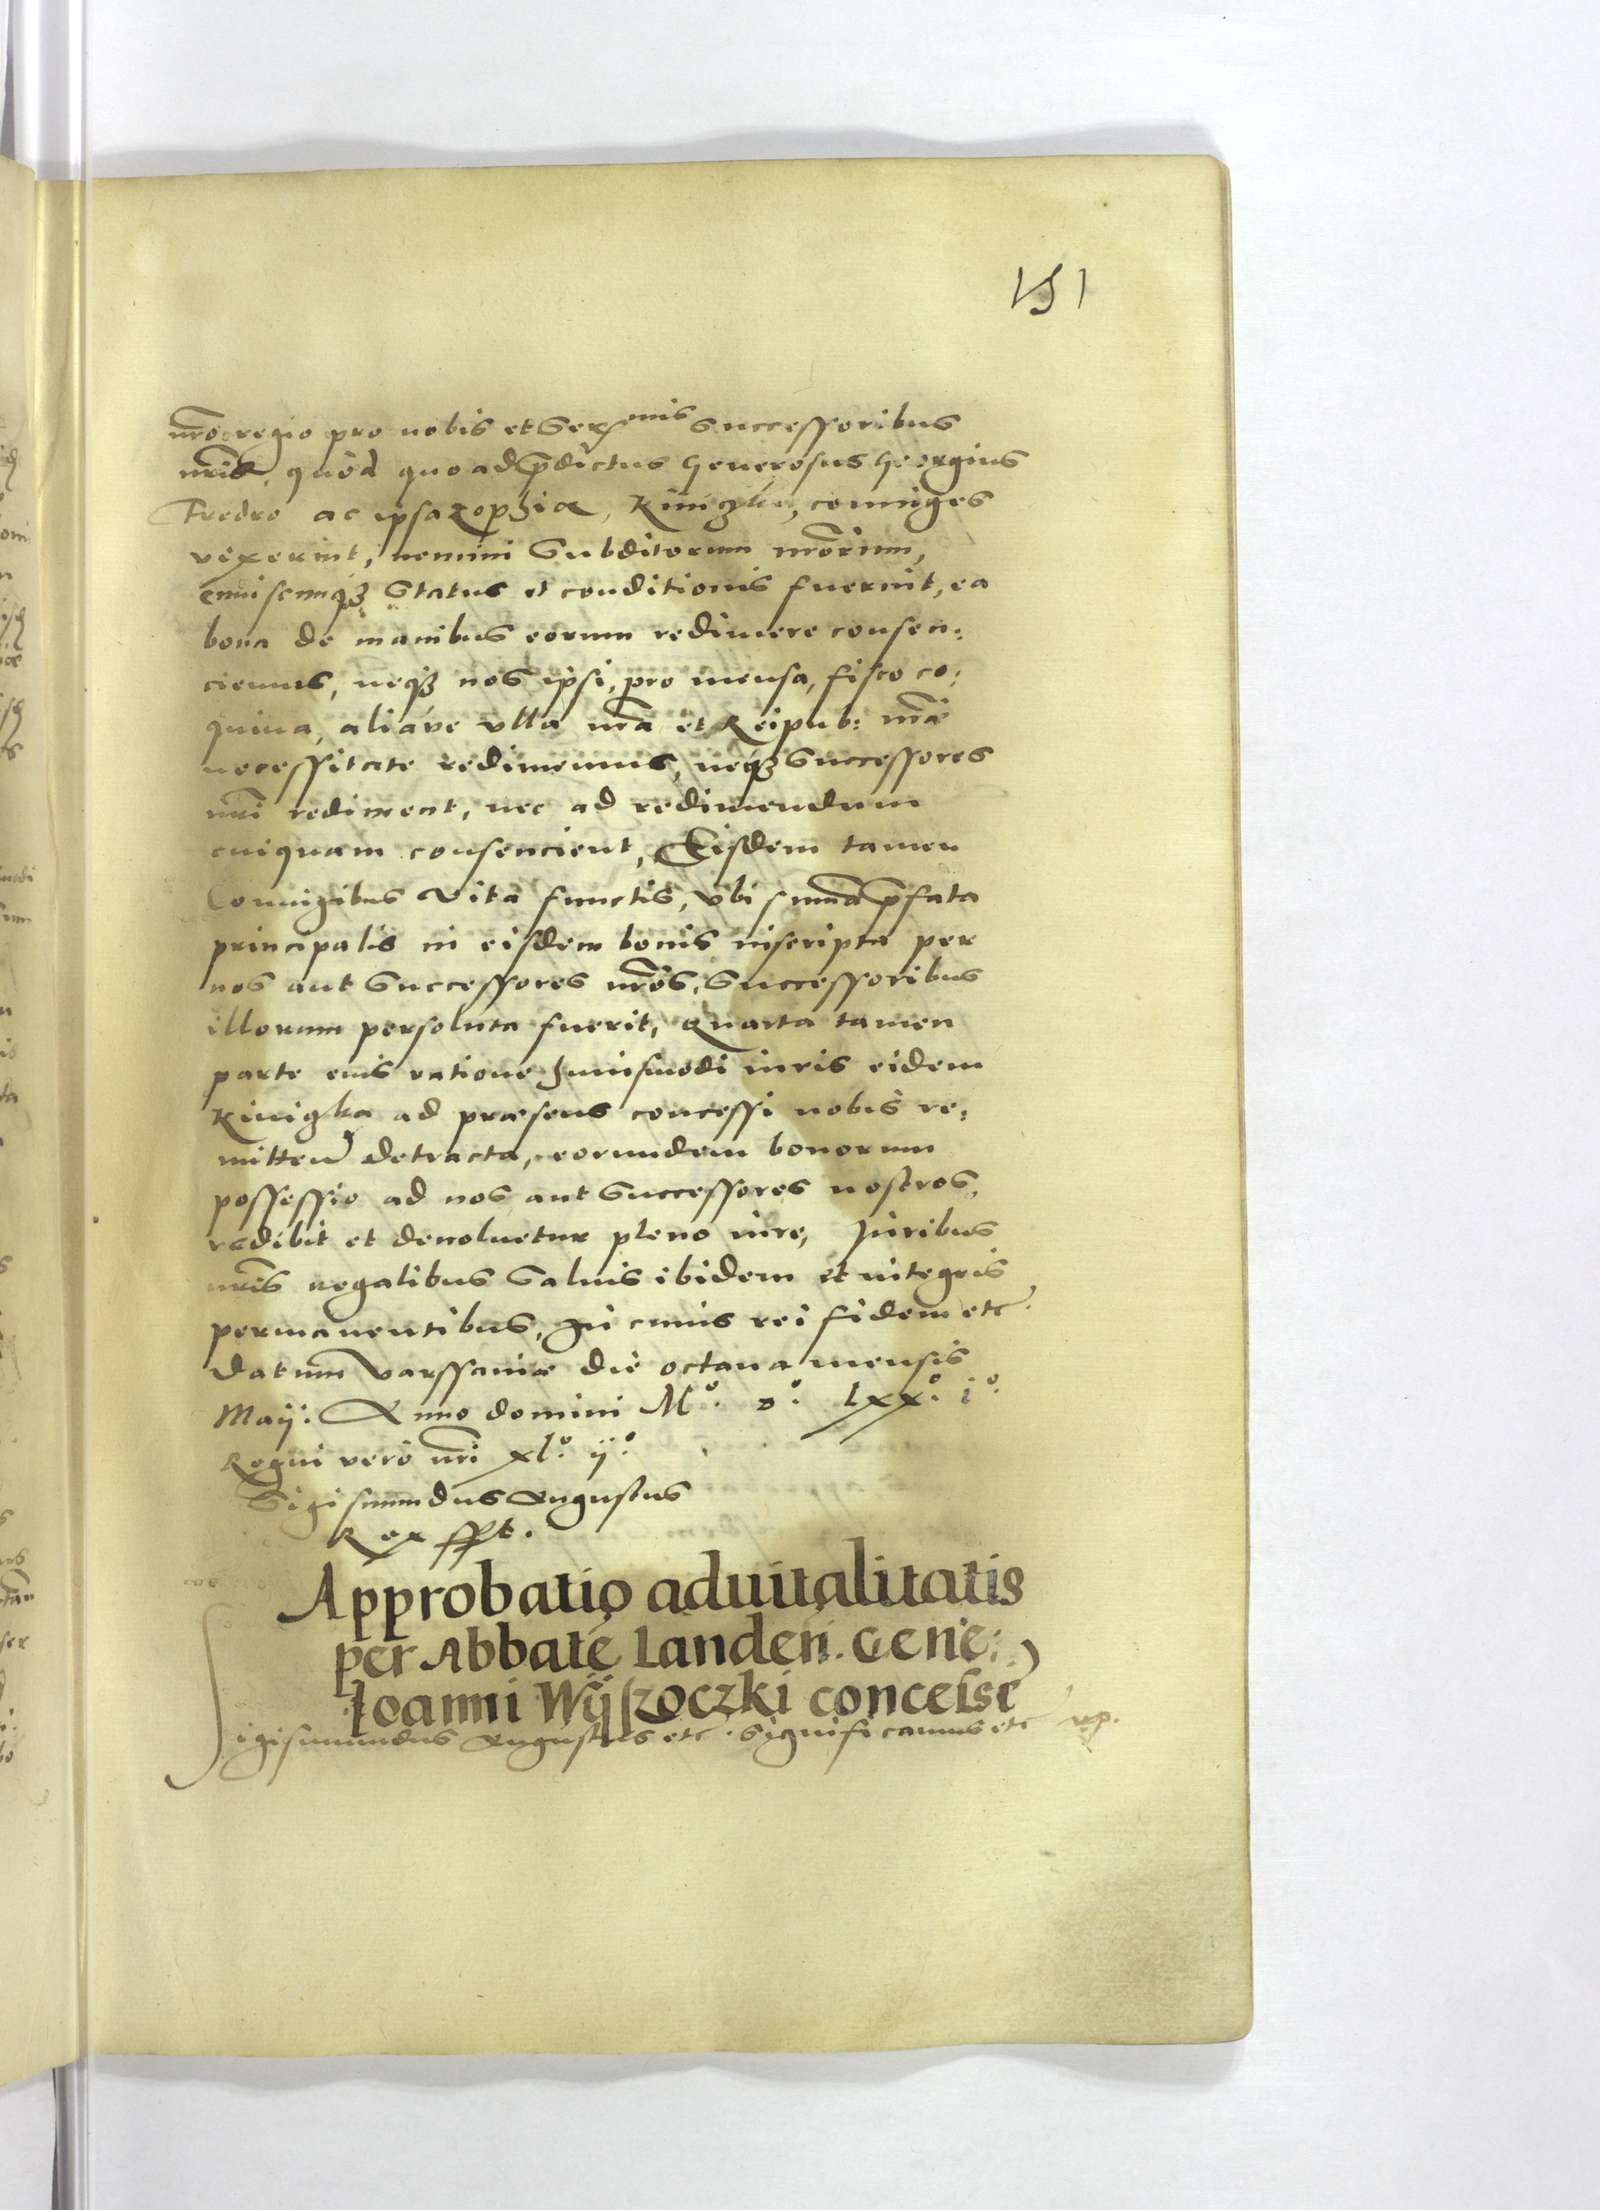 151
nr̃o regio pro nobis et Serenmis Successoribus
nr̃is, quòd quoad p̃dictus Generosus Georgius
Fredro ac ipsa Zophia, Kiniczka, coniuges
vixerint, nemini Subditorum nr̃orum,
cuiuscunqꝫ Status et conditionis fuerint, ea
bona de manibus eorum redimere consen:
ciemus, neqꝫ nos ipsi, pro mensa, fisco co:
quina, aliáve vlla nr̃a et Reipub: nr̃æ
necessitate redimemus, neqꝫ Successores
nr̃i rediment, nec ad redimendum
cuiquam consencient, Eisdem tamen
Coniugibus vita functis, vbi sum̃a p̃fata
principalis in eisdem bonis inscripta per
nos aut Successores nr̃os, Successoribus
illorum persoluta fuerit, quarta tamen
parte eius ratione huiusmodi iuris eidem
Kinigka ad præsens concessi nobis re:
mitten̄ detracta, eorundem bonorum
possessio ad nos aut Successores nostros,
redibit et deuoluetur pleno iure, Iuribus
nr̃is regalibus Saluis ibidem et integris
permanentibus, In cuius rei fidem etc.
Datum Varssauiæ die octaua mensis
Maij: Anno domini Mº. dº. Lxxº. iº.
Regni verò nr̃i xlº. ijº.
Sigismundus Augustus
Rex sspt.
Approbatio aduitalitatis
per Abbatē Landeñ. Gene:
Ioanni Wijszoczki concesse
Sigismundus Augustus etc. Significamus etc